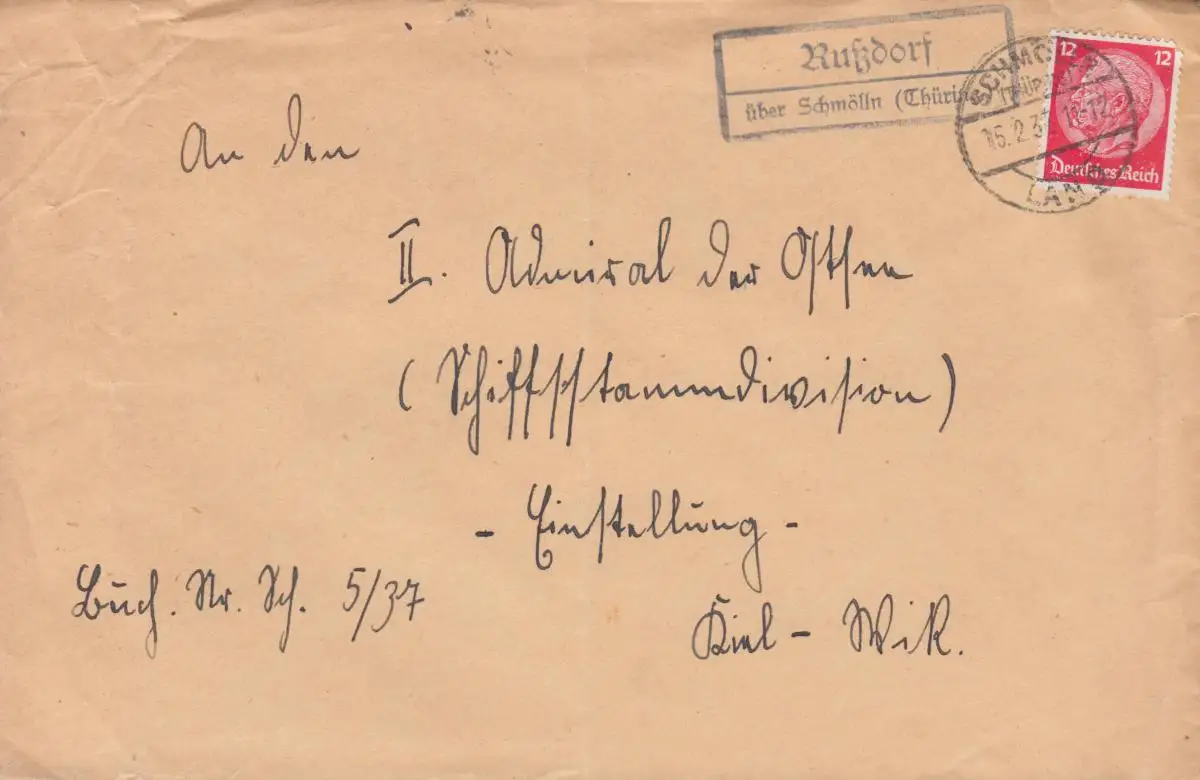 Rußdorf
über Schmölln (Thürin
SCHMÖLLN
(THÜR)
15.2.37 11-12
LAND
12 12
Deutsches Reich
An den
II. Admiral der Ostsee
(Schiffsstammdivision)
- Einstellung -
Buch. Nr. Sch. 5/37
Kiel - Wik.